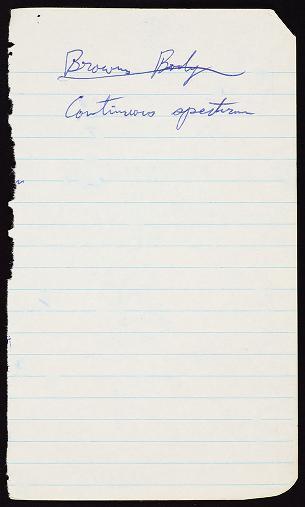 Browns Body
Continuous spectrum